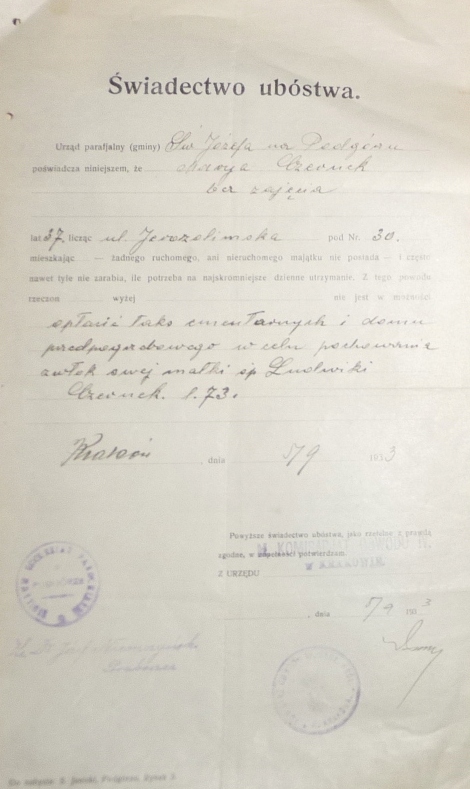 Świadectwo ubóstwa.
Urząd parafjalny (gminy) Św Józefa na Podgórzu
poświadcza niniejszem, że Czernek
bez zajęcia
lat 37. licząc ul. Jerozolimska pod Nr. 30.
mieszkając — żadnego ruchomego, ani nieruchomego majątku nie posiada — i części
nawet tyle nie zarabia, ile potrzeba na najskromniejsze dzienne utrzymanie. Z tego powodu
rzeczon wyżej nie jest w możności
opłacić taks cmentarnych i domu
przedpogrzebowego w celu pochowania
zwłok swej matki śp Ludwiki
Czernek. l. 73.
Kraków , dnia 5/9 1933
Powyższe świadectwo ubóstwa, jako rzetelne z prawdą
zgodne, w zupełności potwierdzam.
M. KOMISARJAT OBWODU IV.
W KRAKOWIE
Z URZĘDU
, dnia 5/9 1933